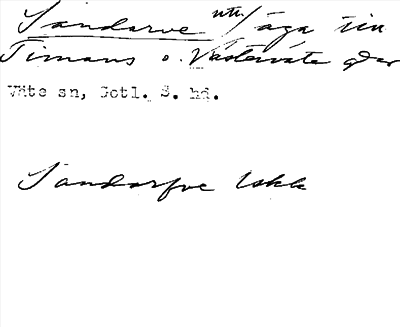 Sandarve utr/äga in
Timans o. Västerväte gdar
Väte sn, Gotl. S. hd.
Sandarfve Uskk